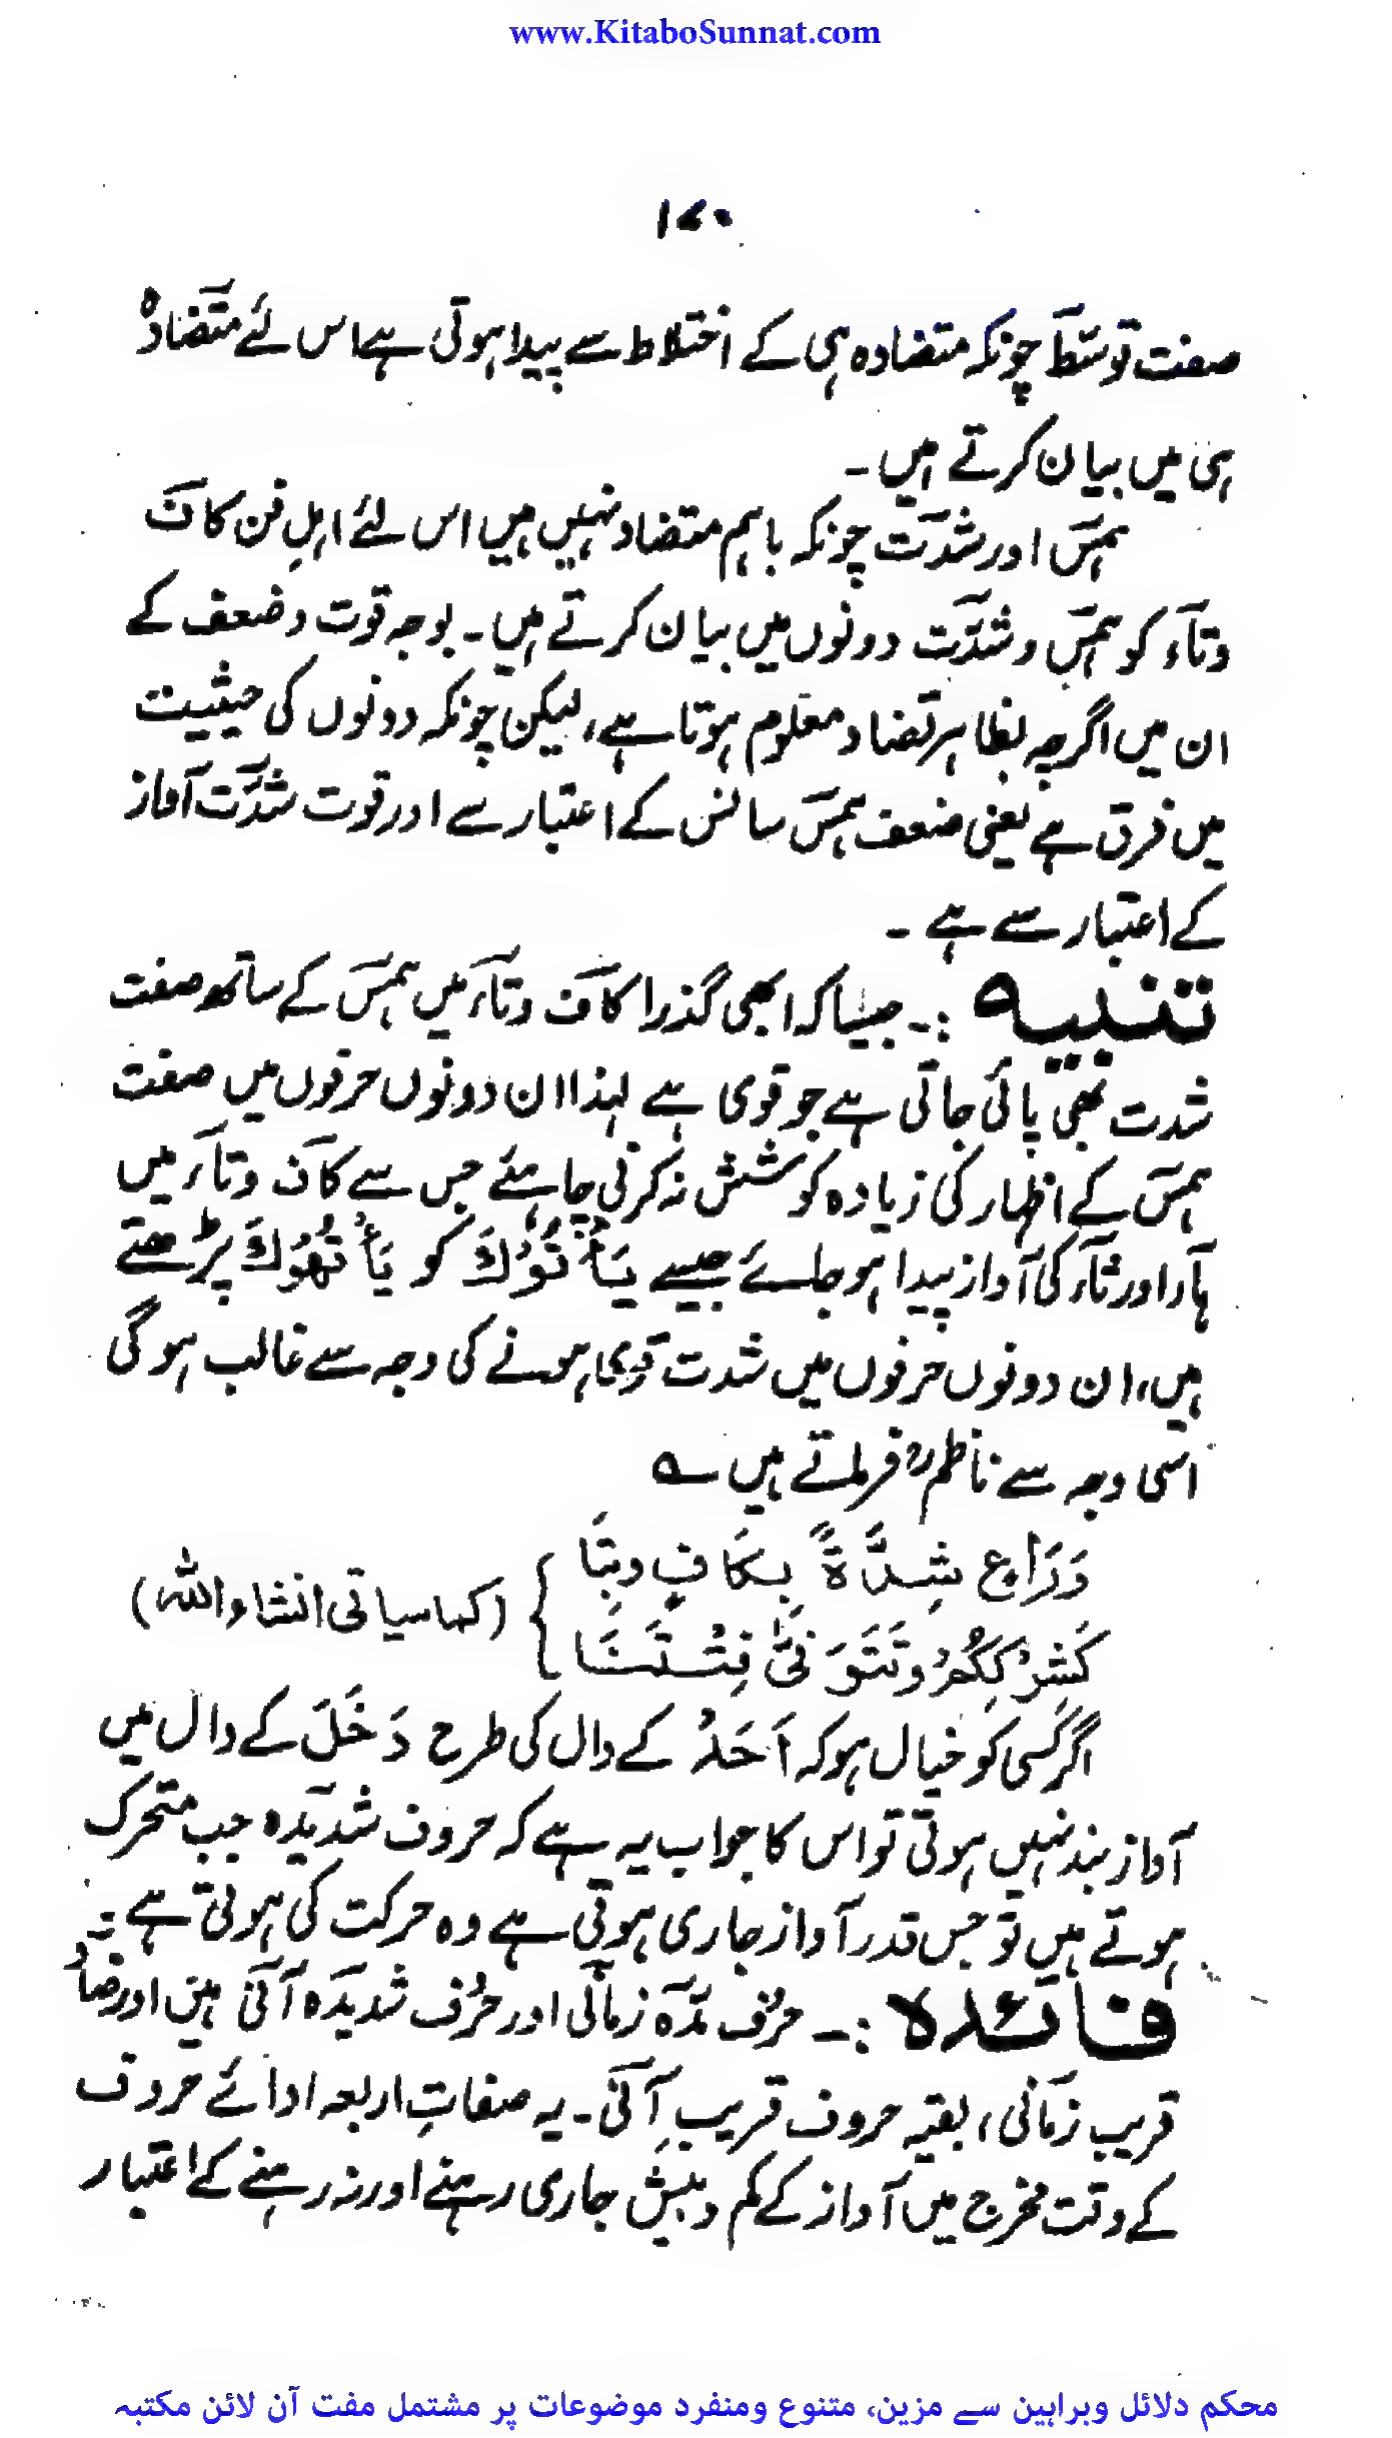 www.KitaboSunnat.com
۱۷۰
صفت توسّط چونکہ متضادہ ہی کے اختلاط سے پیدا ہوتی ہے اس لئے متضادہ
ہی میں بیان کرتے ہیں ۔
ہمس اور شدّت چونکہ باہم متضاد نہیں ہیں اس لئے اہلِ فن کاف
وتاء کو ہمس وشدّت دونوں میں بیان کرتے ہیں ۔ بوجہ قوت وضعف کے
ان میں اگرچہ بظاہر تضاد معلوم ہوتا ہے، لیکن چونکہ دونوں کی حیثیت
میں فرق ہے یعنی ضعف ہمس سانس کے اعتبار سے اور قوت شدّت آواز
کے اعتبار سے ہے ۔
تنبیہ :۔ جیسا کہ ابھی گذرا کاف وتاء میں ہمس کے ساتھ صفت
شدت بھی پائی جاتی ہے جو قوی ہے لہذا ان دونوں حرفوں میں صفت
ہمس کے اظہار کی زیادہ کوشش نہ کرنی چاہئے جس سے کاف وتاء میں
ہاء اور ثاء کی آواز پیدا ہو جائے جیسے یَأْتُوْكَ کو یَأْتْھُوْكَ پڑھتے
ہیں، ان دونوں حرفوں میں شدت قوی ہونے کی وجہ سے غالب ہو گی
اسی وجہ سے ناظمؒ فرماتے ہیں ؎
وَرَاعِ شِدَّةً بِكَافٍ وبِتَا
كَشِرْكِكُمْ وتَتَوَفّٰى فِتْنَتَا } (کما سیاتی انشاء اللہ)
اگر کسی کو خیال ہو کہ اَحَدْ کے دال کی طرح دَخَلَ کے دال میں
آواز بند نہیں ہوتی تو اس کا جواب یہ ہے کہ حروف شدیدہ جب متحرک
ہوتے ہیں تو جس قدر آواز جاری ہوتی ہے وہ حرکت کی ہوتی ہے ۔
فائدہ :۔ حرُف مدّہ زمانی اور حرُف شدیدہ آنی ہیں اور ضاد
قریب زمانی، بقیہ حروف قریبِ آنی ۔ یہ صفاتِ اربعہ ادائے حروف
کے وقت مخرج میں آواز کے کم وبیش جاری رہنے اور نہ رہنے کے اعتبار
محکم دلائل وبراہین سے مزین، متنوع ومنفرد موضوعات پر مشتمل مفت آن لائن مکتبہ